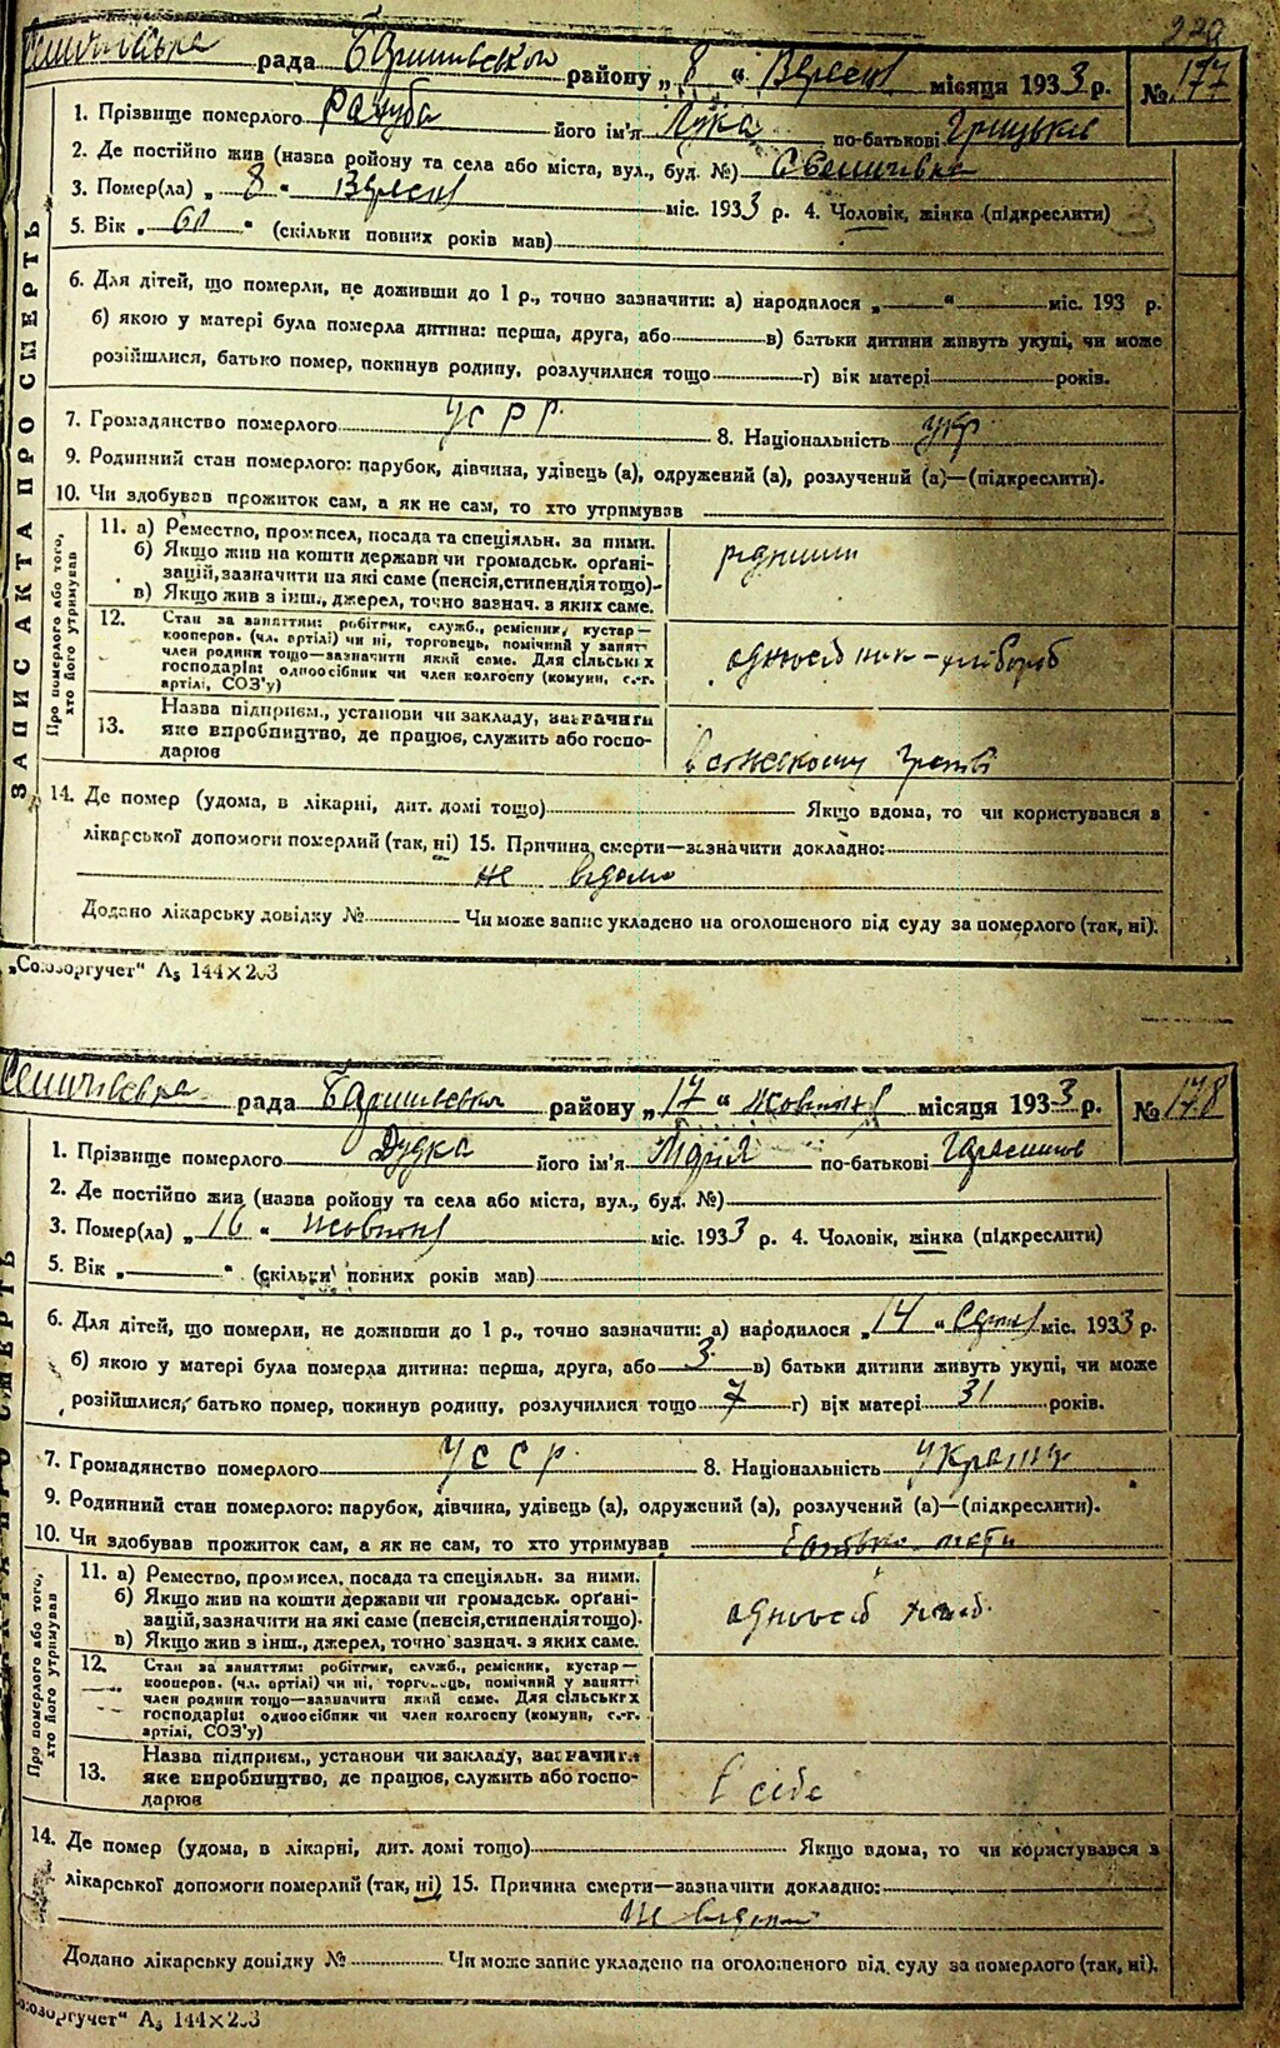 229
Селичівська рада Баришівського району „ 8 “ Вересня місяця 1933 р. № 177
1. Прізвище померлого Рачуба його ім'я Лука по-батькові Грицьків
2. Де постійно жив (назва ройону та села або міста, вул., буд. №) с Селичівка
3. Помер(ла) „ 8 “ Вересня міс. 1933 р. 4. Чоловік, жінка (підкреслити)
5. Вік „ 60 “ (скільки повних років мав)
6. Для дітей, що померли, не доживши до 1 р., точно зазначити: а) народилося „ “ міс. 193 р.
б) якою у матері була померла дитина: перша, друга, або в) батьки дитини живуть укупі, чи може
розійшлися, батько помер, покинув родину, розлучилися тощо г) вік матері років.
7. Громадянство померлого УСРР. 8. Національність укр
9. Родинний стан померлого: парубок, дівчина, удівець (а), одружений (а), розлучений (а)—(підкреслити).
10. Чи здобував прожиток сам, а як не сам, то хто утримував
ЗАПИС АКТА ПРО СМЕРТЬ
Про померлого або того, хто його утримував
11. а) Ремество, промисел, посада та спеціяльн. за ними.
б) Якщо жив на кошти держави чи громадськ. орґані-
зацій, зазначити на які саме (пенсія, стипендія тощо)-
в) Якщо жив з інш., джерел, точно зазнач. з яких саме.
12. Стан за заняттям: робітник, служб., ремісник, кустар—
кооперов. (чл. артілі) чи ні, торговець, помічний у занятті
член родини тощо—зазначити який саме. Для сільських
господарів: одноосібник чи член колгоспу (комуни, с.-г.
артілі, СОЗ'у)
одноосібник-хлібороб
13. Назва підприєм., установи чи закладу, зазначити
яке виробництво, де працює, служить або госпо-
дарює
14. Де помер (удома, в лікарні, дит. домі тощо) Якщо вдома, то чи користувався з
лікарської допомоги померлий (так, ні) 15. Причина смерти—зазначити докладно:
не відомо
Додано лікарську довідку № Чи може запис укладено на оголошеного від суду за померлого (так, ні).
„Союзоргучет“ А₅ 144×203
Селичівська рада Баришівська району „ 17 “ жовтня місяця 1933 р. № 178
1. Прізвище померлого Дудка його ім'я Марія по-батькові Гарасимів
2. Де постійно жив (назва ройону та села або міста, вул., буд. №)
3. Помер(ла) „ 16 “ жовтня міс. 1933 р. 4. Чоловік, жінка (підкреслити)
5. Вік „ “ (скільки повних років мав)
6. Для дітей, що померли, не доживши до 1 р., точно зазначити: а) народилося „ 14 “ Серпня міс. 1933 р.
б) якою у матері була померла дитина: перша, друга, або 3. в) батьки дитини живуть укупі, чи може
розійшлися, батько помер, покинув родину, розлучилися тощо 7 г) вік матері 31 років.
7. Громадянство померлого УССР. 8. Національність
9. Родинний стан померлого: парубок, дівчина, удівець (а), одружений (а), розлучений (а)—(підкреслити).
10. Чи здобував прожиток сам, а як не сам, то хто утримував батько мати
Про померлого або того, хто його утримував
11. а) Ремество, промисел, посада та спеціяльн. за ними.
б) Якщо жив на кошти держави чи громадськ. орґані-
зацій, зазначити на які саме (пенсія, стипендія тощо).
в) Якщо жив з інш., джерел, точно зазнач. з яких саме.
одноосіб хліб.
12. Стан за заняттям: робітник, служб., ремісник, кустар—
кооперов. (чл. артілі) чи ні, торговець, помічний у занятті
член родини тощо—зазначити який саме. Для сільських
господарів: одноосібник чи член колгоспу (комуни, с.-г.
артілі, СОЗ'у)
13. Назва підприєм., установи чи закладу, зазначити
яке виробництво, де працює, служить або госпо-
дарює
в себе
14. Де помер (удома, в лікарні, дит. домі тощо) Якщо вдома, то чи користувався з
лікарської допомоги померлий (так, ні) 15. Причина смерти—зазначити докладно:
не відомо
Додано лікарську довідку № Чи може запис укладено на оголошеного від суду за померлого (так, ні).
оюзоргучет“ А₅ 144×203